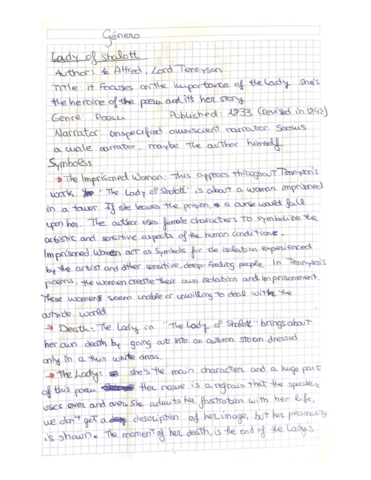 Género
Lady of Shalott
Author: Alfred, Lord Tennyson
Title it focuses on the importance of the Lady she's
the heroine of the poem and it's her story
Genre Poem Published: 1833 (revised in 1842)
Narrator Unspecified omniscient narrator seems
a male narrator, maybe the author himself
Symbols
→ The Imprisoned Woman: This appears throughout Tennyson's
work. "The Lady of Shalott" is about a woman imprisoned
in a tower If she leaves the prison, a curse would fall
upon her. The author uses female characters to symbolize the
artistic and sensitive aspects of the human condition.
Imprisoned Women act as symbols for the isolation experienced
by the artist and other sensitive, deep-feeling people In Tennyson's
poems, the women create their own isolation and imprisonment.
These women seem unable or unwilling to deal with the
outside world
→ Death: The Lady in "The Lady of Shalott" brings about
her own death by going out into an autumn storm dressed
only in a thin white dress.
→ The Lady: she's the main character and a huge part
of this poem. Her name is a refrain that the speaker
uses over and over She admits her frustration with her life,
we don't get a description of her image, but her personality
is shown. The moment of her death, is the end of the Lady's